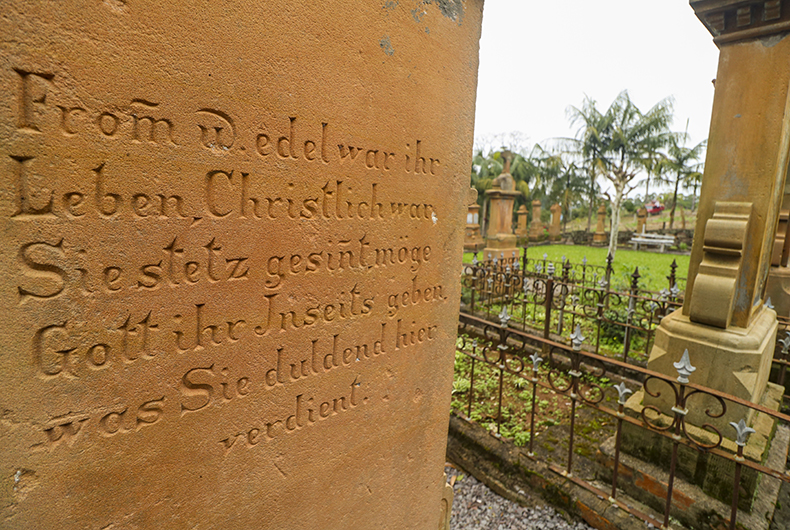 From̄ u̅d. edel war ihr
Leben, Christlich war
Sie stetz gesin̄t, möge
Gott ihr Jnseits geben,
was Sie duldend hier
verdient.